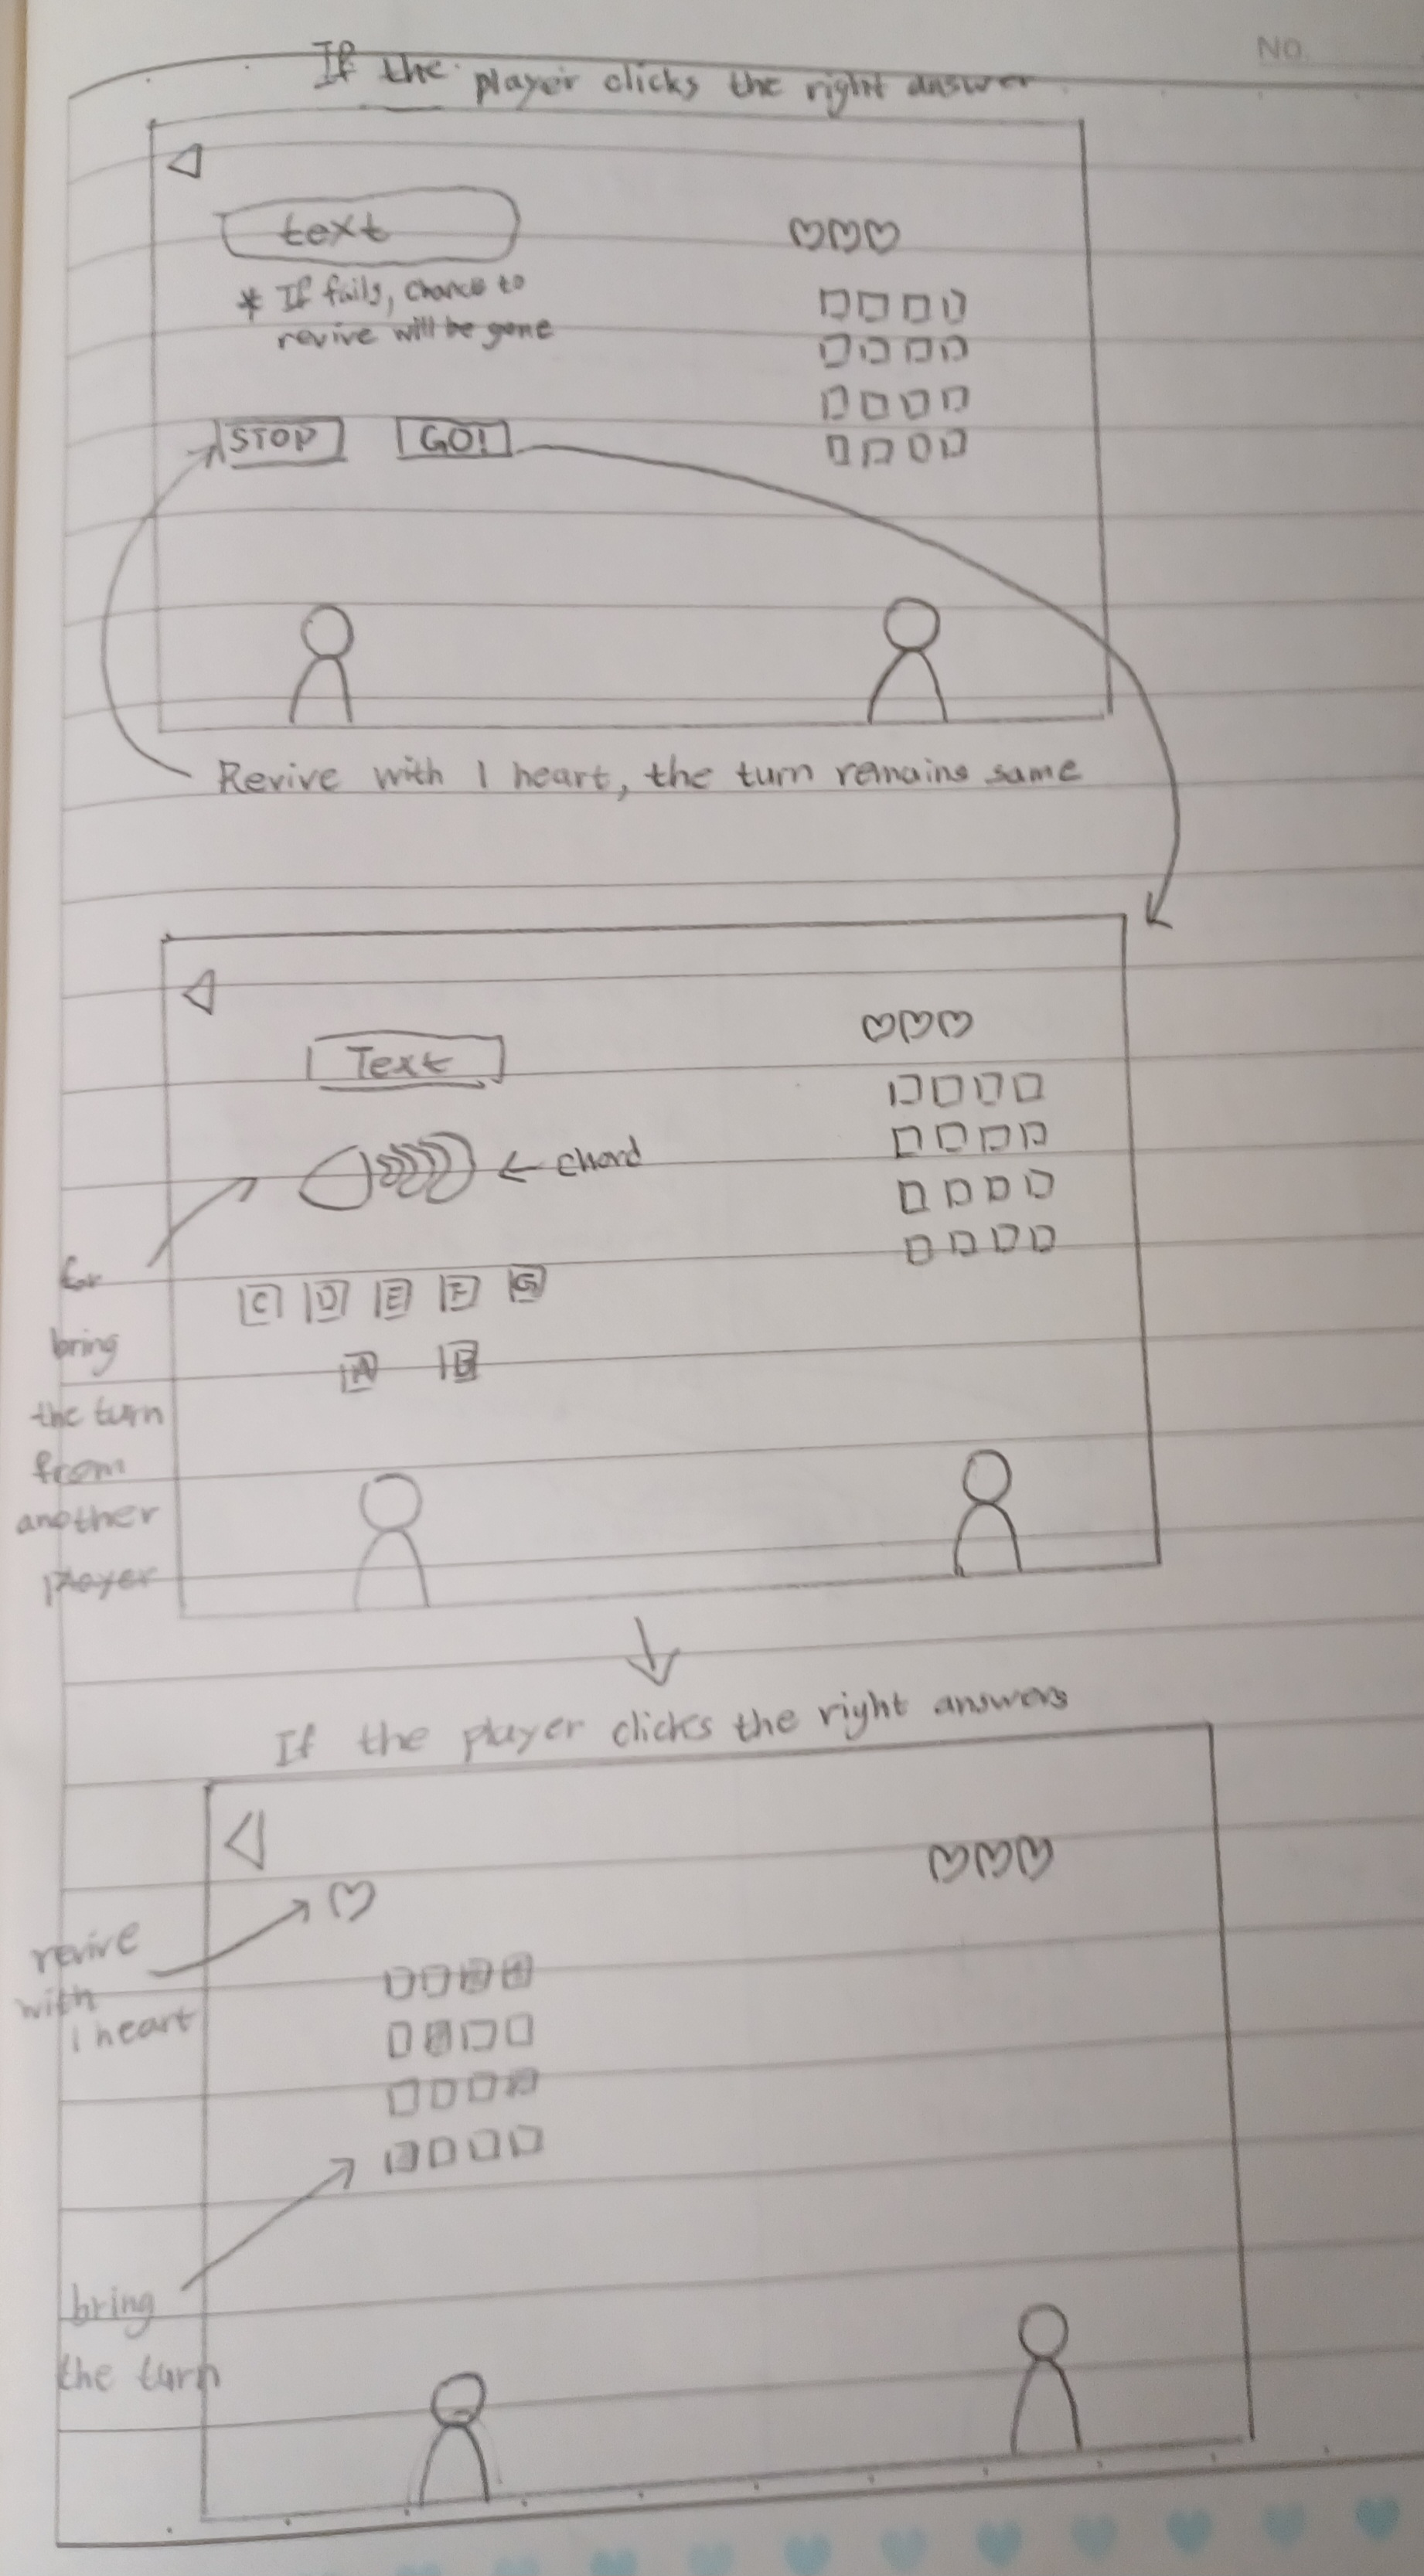 NO.
If the player clicks the right answer
text
* If fails, chance to
revive will be gone
STOP GO!
Revive with 1 heart, the turn remains same
Text
← chord
for
bring
the turn
from
another
player
C D E F G
A B
If the player clicks the right answers
revive
with
1 heart
bring
the turn